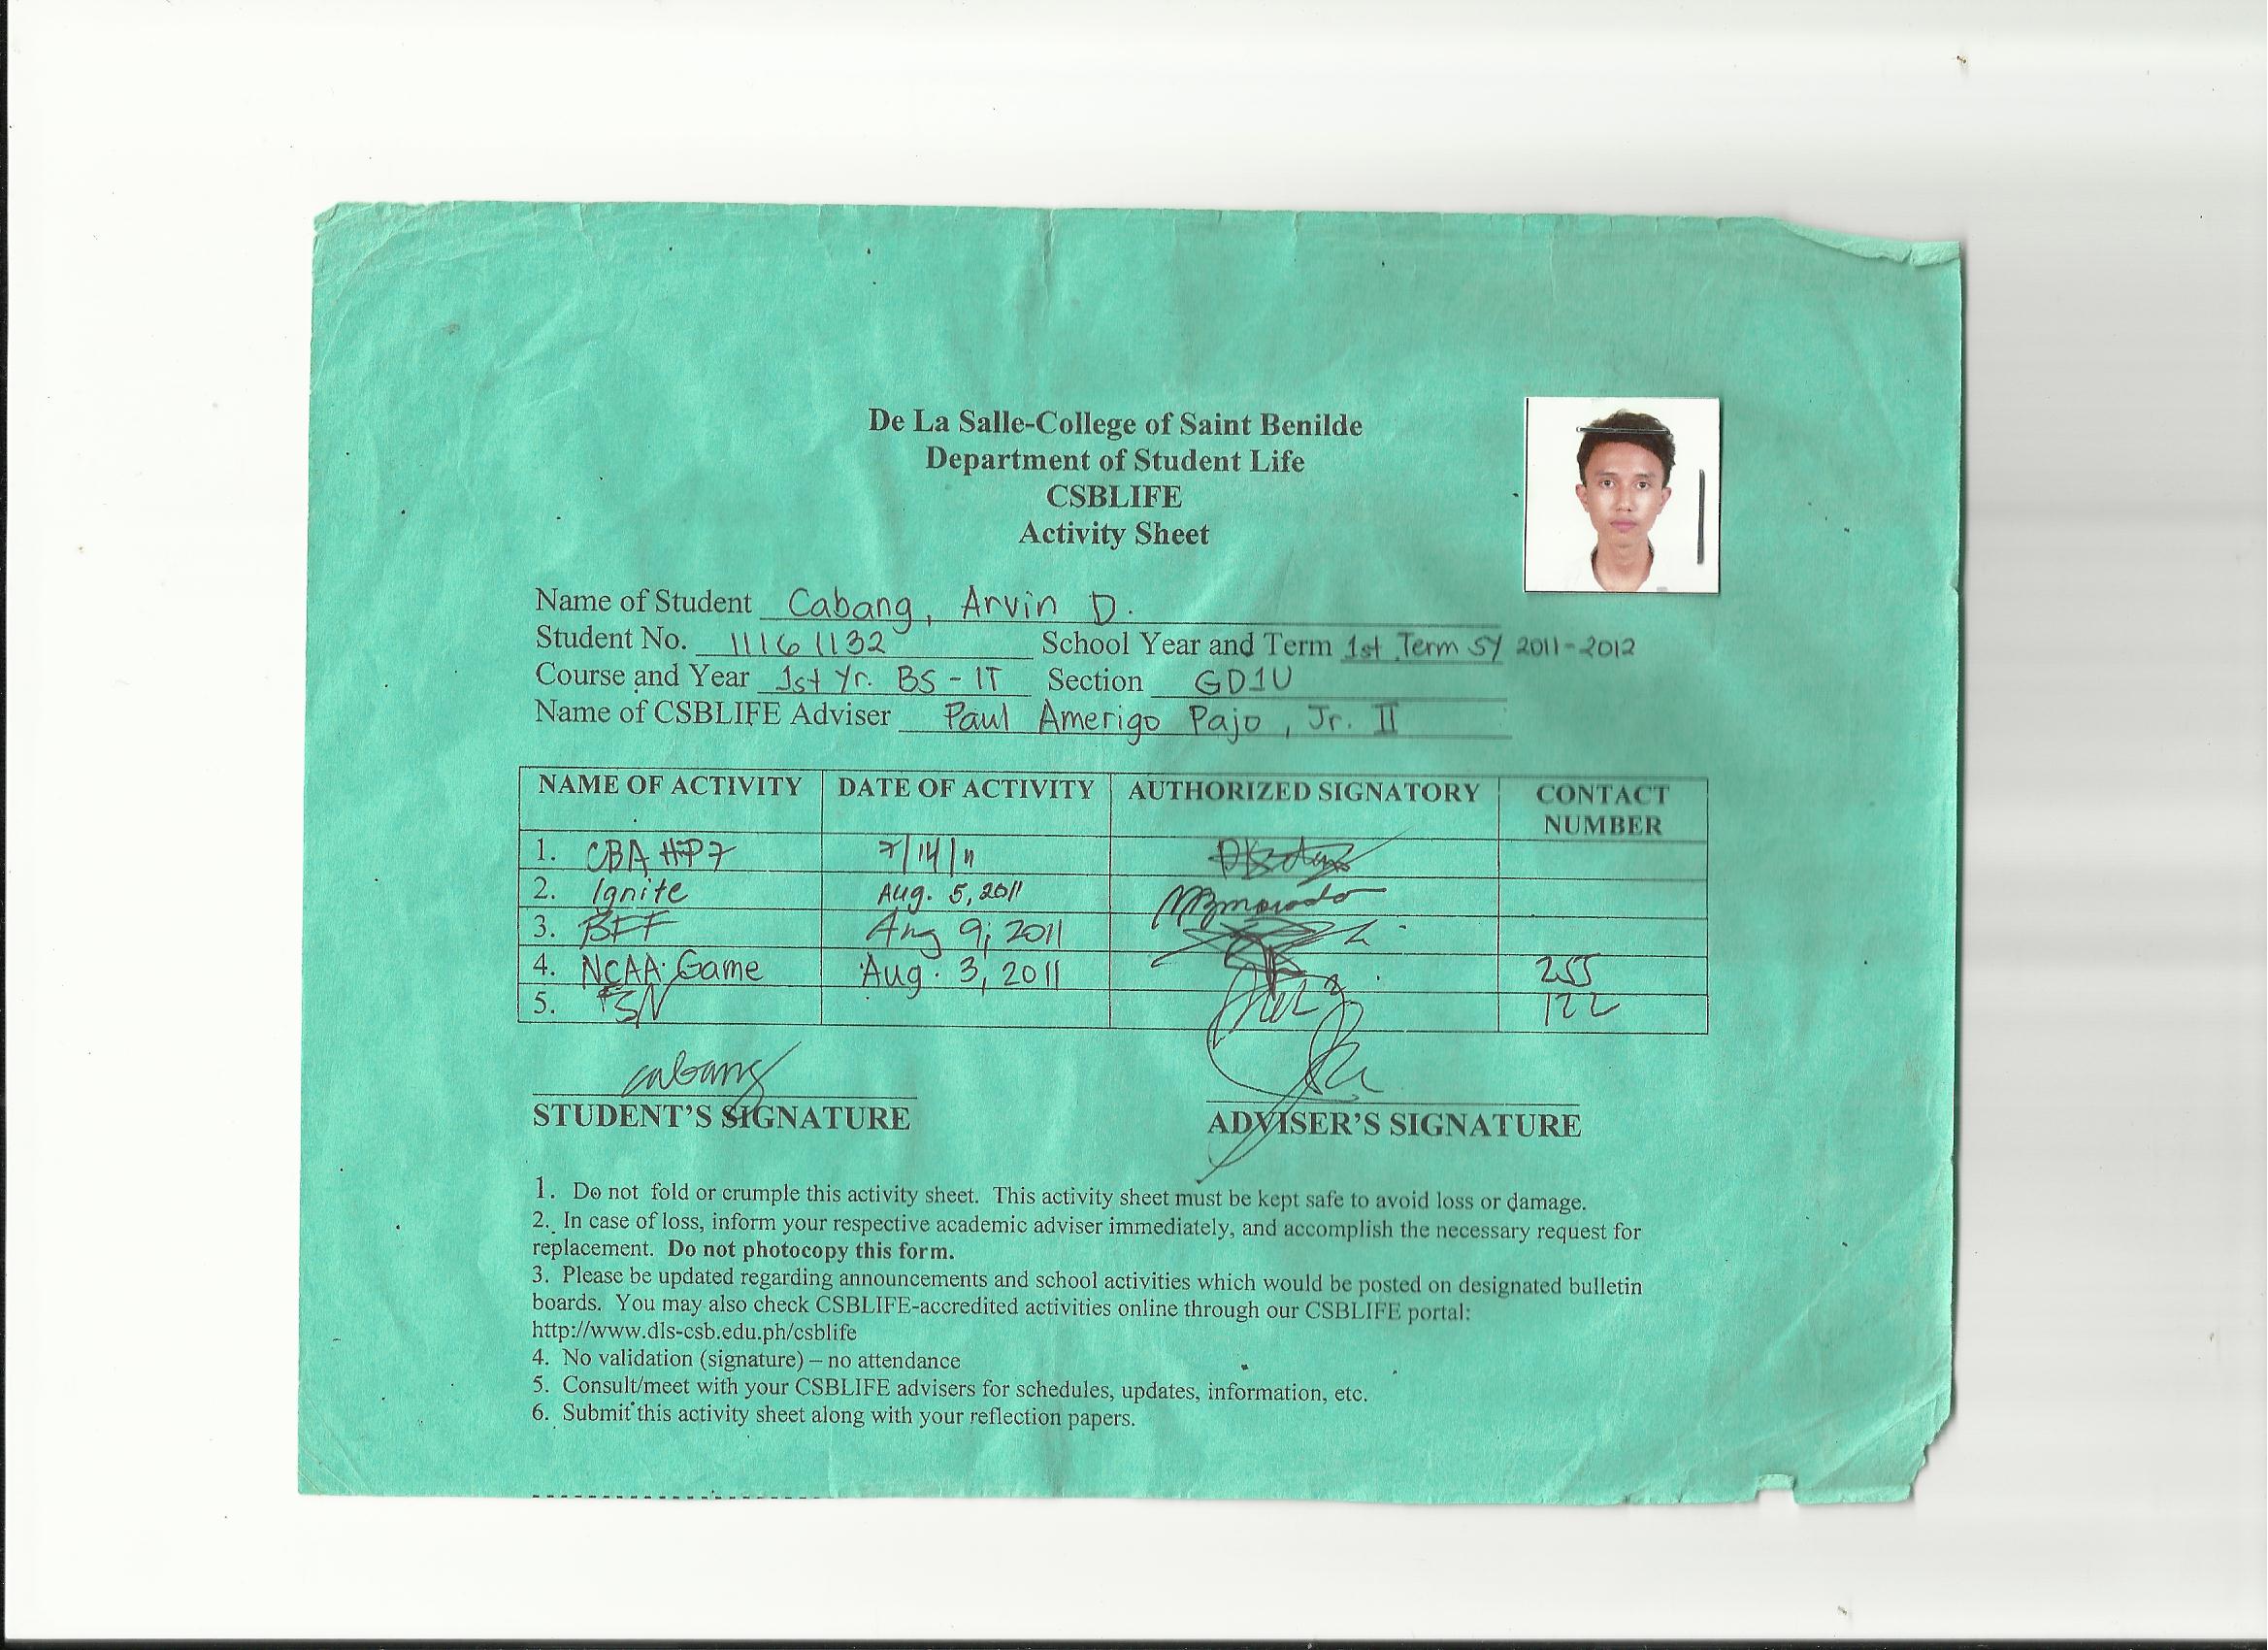 De La Salle-College of Saint Benilde
Department of Student Life
CSBLIFE
Activity Sheet
Name of Student Cabang, Arvin D.
Student No. 11161132 School Year and Term 1st Term SY 2011-2012
Course and Year 1st Yr. BS - IT Section GD1U
Name of CSBLIFE Adviser Paul Amerigo Pajo, Jr. II
NAME OF ACTIVITY DATE OF ACTIVITY AUTHORIZED SIGNATORY CONTACT NUMBER
1. CBA HP7 7/14/11
2. Ignite Aug. 5, 2011
3. BFF Aug 9, 2011
4. NCAA Game Aug. 3, 2011 255
5. 122
cabang
STUDENT'S SIGNATURE ADVISER'S SIGNATURE
1. Do not fold or crumple this activity sheet. This activity sheet must be kept safe to avoid loss or damage.
2. In case of loss, inform your respective academic adviser immediately, and accomplish the necessary request for
replacement. Do not photocopy this form.
3. Please be updated regarding announcements and school activities which would be posted on designated bulletin
boards. You may also check CSBLIFE-accredited activities online through our CSBLIFE portal:
http://www.dls-csb.edu.ph/csblife
4. No validation (signature) – no attendance
5. Consult/meet with your CSBLIFE advisers for schedules, updates, information, etc.
6. Submit this activity sheet along with your reflection papers.